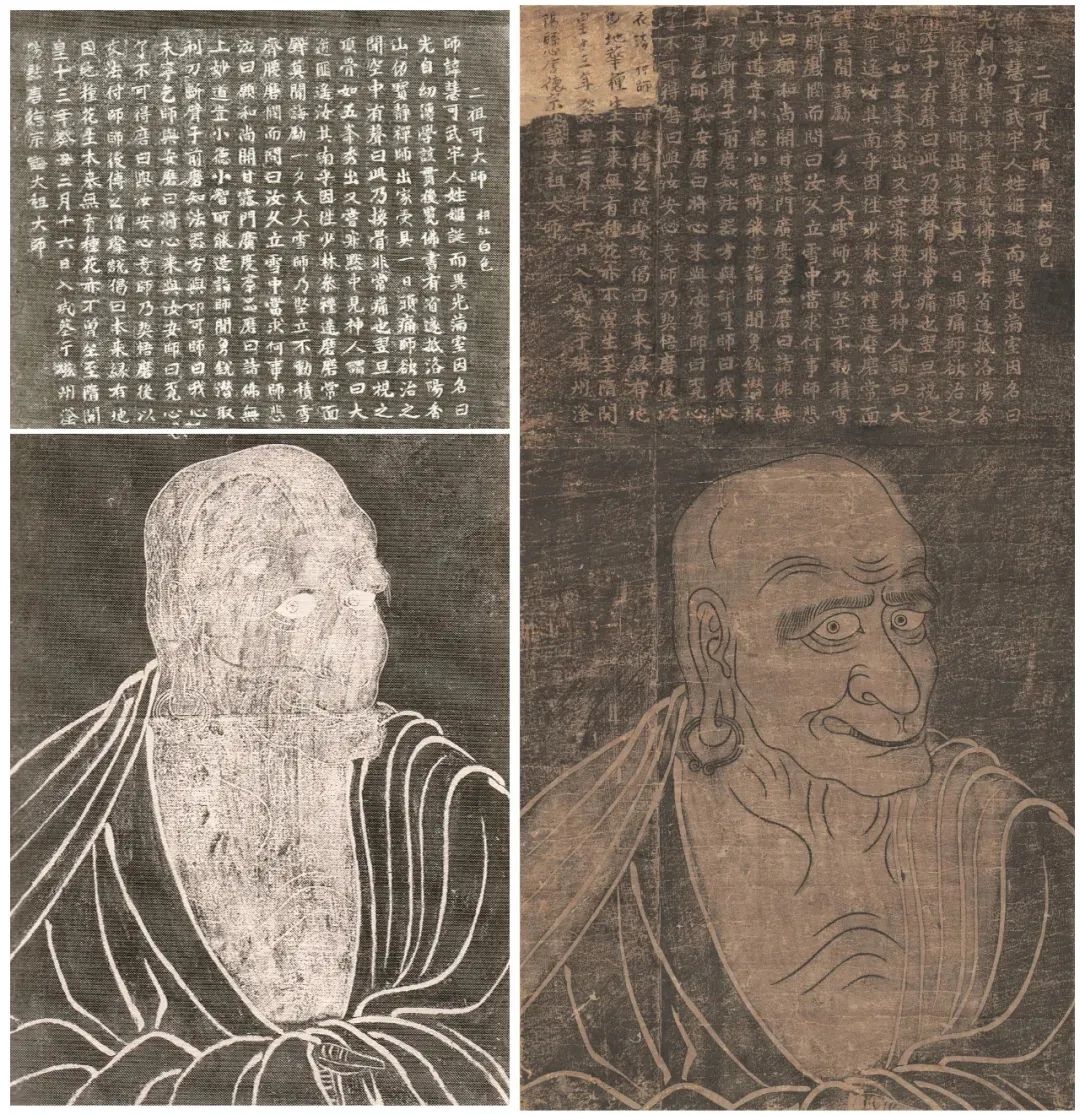 二祖可大師 相紅白色
師諱慧可武牢人姓姬誕而異光滿室因名曰
光自幼博學該貫後覽佛書有省遂抵洛陽香
山依寶靜禪師出家受具一日頭痛師欲治之
聞空中有聲曰此乃換骨非常痛也翌旦視之
頂骨如五峯秀出又嘗非默中見神人謂曰大
逝匪遙汝其南乎因性少林參禮達磨磨常面
壁莫聞誨勵一夕天大雪師乃堅立不動積雪
齊腰磨閔而問曰汝久立雪中當求何事師悲
泣曰願和尚開甘露門廣度羣品磨曰諸佛無
上妙道豈小德小智所能造詣師聞勇銳潛取
利刀斷臂于前磨知法器方與印可師曰我心
未寧乞師與安磨曰將心來與汝安師曰覓心
了不可得磨曰與汝安心竟師乃契悟磨後以
衣法付師師後傳之僧璨說偈曰本來緣有地
因地種花生本來無有種花亦不曾生至隋開
皇十三年癸丑三月十六日入戒葬于磁州滏
陽縣唐德宗謚大祖大師
二祖可大師 相紅白色
師諱慧可武牢人姓姬誕而異光滿室因名曰
光自幼博學該貫後覽佛書有省遂抵洛陽香
寶靜禪師出家受具一日頭痛師欲治之
空中有聲曰此乃換骨非常痛也翌旦視之
骨如五峯秀出又嘗非默中見神人謂曰大
逝匪遙汝其南乎因性少林參禮達磨磨常面
壁莫聞誨勵一夕天大雪師乃堅立不動積雪
齊腰磨閔而問曰汝久立雪中當求何事師悲
泣曰願和尚開甘露門廣度羣品磨曰諸佛無
上妙道豈小德小智所能造詣師聞勇銳潛取
利刀斷臂于前磨知法器方與印可師曰我心
未寧乞師與安磨曰將心來與汝安師曰覓心
了不可得磨曰與汝安心竟師乃契悟磨後以
衣法付師師後傳之僧璨說偈曰本來緣有地
因地華種生本來無有種華亦不曾生至隋開
皇十三年癸丑三月十六日入戒葬于磁州滏
陽縣唐德宗謚大祖大師